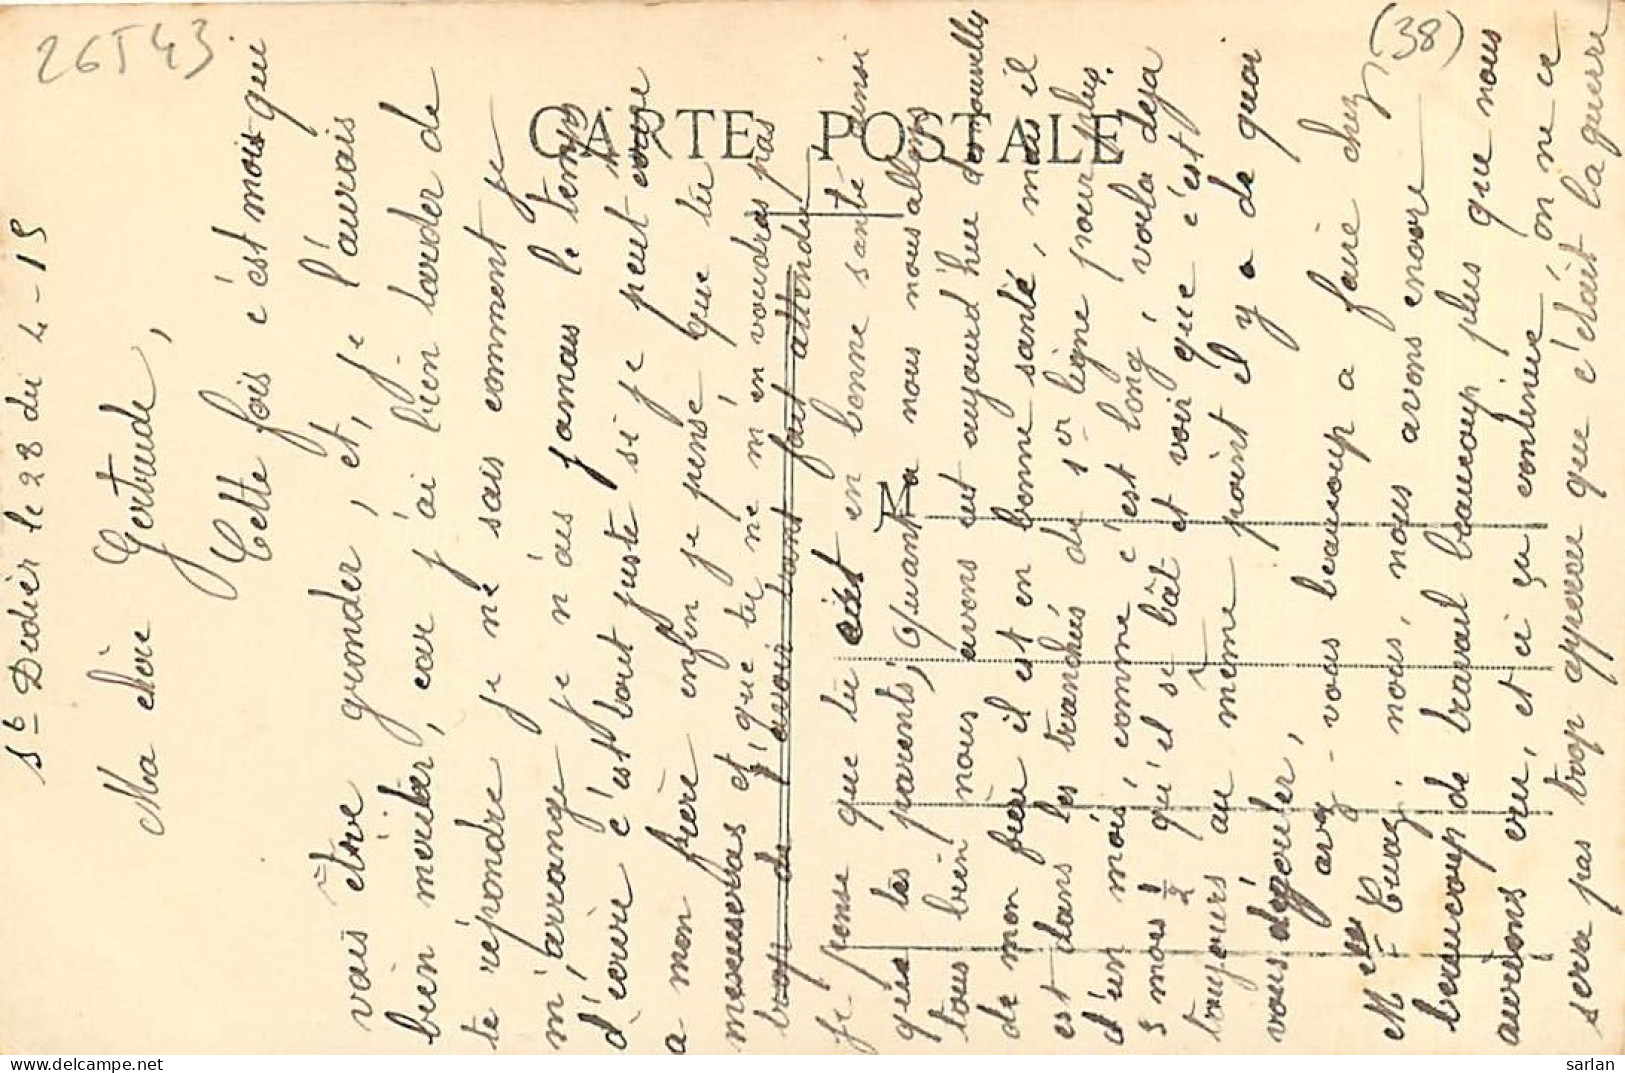 26T43
(38)
CARTE POSTALE
M
St Didier le 28 du 4-15
Ma chère Gertrude,
Cette fois c'est mois qui
vais être gronder, et, je l'aurais
bien meriter, car j'ai bien tarder de
te répondre je ne sais comment je
m'arrange je n'ais jamais le temps
d'écrire c'est tout juste si je peut ecrire
a mon frère enfin je pense que tu
m'excuseras et, que tu ne m'en voudras pas
trop de t'avoir tant fait attendre,
Je pense que tu est en bonne santé ainsi
que les parents, Quant a nous nous allons
tous bien nous avons eut aujourd'hui de nouvelles
de mon frère il est en bonne santé, mai il
est dans les tranchées de 1er ligne pour plus.
d'un mois, comme c'est long, voila deja
5 mois 1/2 qu'il se bât et voir que c'est
toujours au même point il y a de quoi
vous dégouter,
avez-vous beaucoup a faire chez
Mme Cuaz, nous, nous avons encore
beaucoup de travail beaucoup plus que nous
aurions cru, et si ça continue on ne ce
sera pas trop apercu que c'était la guerre
sarlan